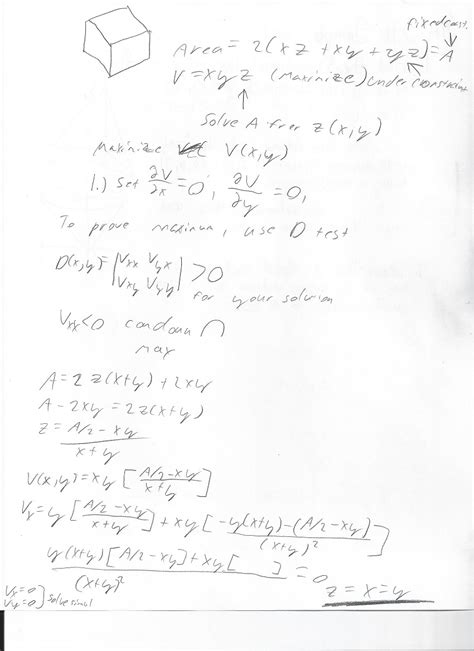 fixed const.
Area = 2(xz + xy + yz) = A
V = xyz (Maximize) under constraint
Solve A for z(x,y)
Maximize V(x,y)
1.) Set ∂V/∂x = 0, ∂V/∂y = 0,
To prove maximum, use D test
D(x,y) = |Vxx Vyx
Vxy Vyy| > 0
for your solution
Vxx < 0 down ∩
A = 2z(x+y) + 2xy
A - 2xy = 2z(x+y)
z = (A/2 - xy)/(x+y)
V(x,y) = xy [(A/2 - xy)/(x+y)]
Vx = y [(A/2 - xy)/(x+y)] + xy [(-y(x+y) - (A/2 - xy))/(x+y)²]
(y(x+y)[A/2 - xy] + xy[ ])/(x+y)² = 0
z = x = y
Vx = 0
Vy = 0 } Solve simul